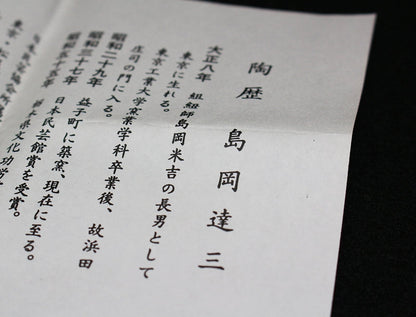 陶歴 島岡達三
大正八年 組紐師島岡米吉の長男として
東京に生れる。
東京工業大学窯業学科卒業後、故浜田
庄司の門に入る。
昭和二十九年 益子町に築窯、現在に至る。
昭和三十七年 日本民芸館賞を受賞。
昭和五十五年 栃木県文化功労